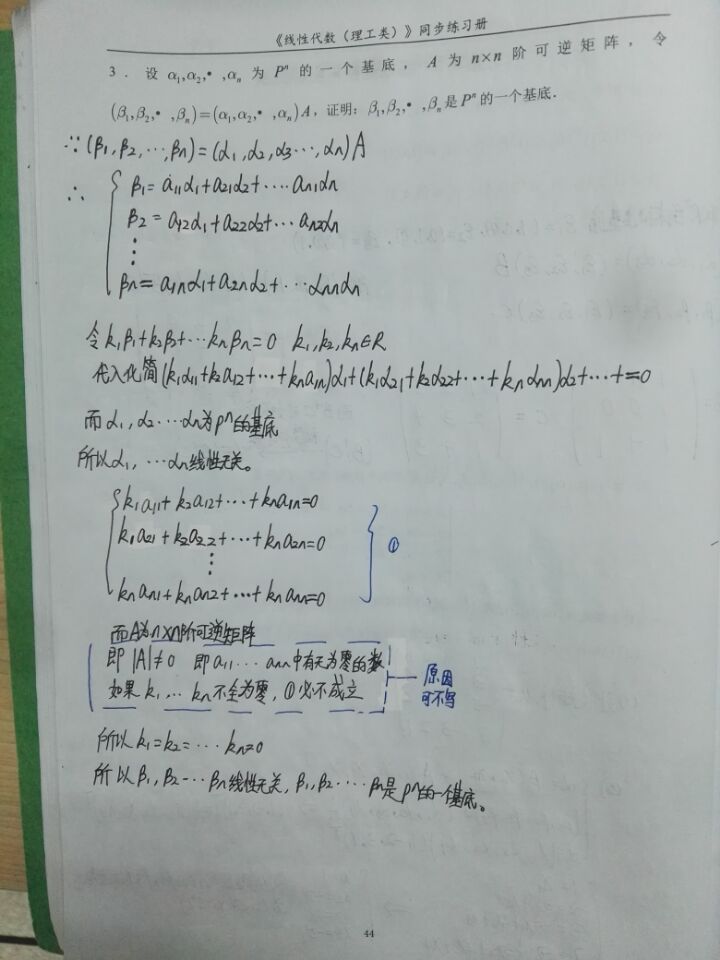 《线性代数（理工类）》同步练习册
3．设 α₁,α₂,• ,αₙ 为 Pⁿ 的一个基底，A 为 n×n 阶可逆矩阵，令
(β₁,β₂,• ,βₙ)=(α₁,α₂,• ,αₙ)A，证明：β₁,β₂,• ,βₙ是Pⁿ的一个基底．
∵(β₁,β₂,⋯,βₙ)=(α₁,α₂,α₃⋯,αₙ)A
∴ β₁=a₁₁α₁+a₂₁α₂+⋯⋅aₙ₁αₙ
β₂=a₁₂α₁+a₂₂α₂+⋯aₙ₂αₙ
⋮
βₙ=a₁ₙα₁+a₂ₙα₂+⋯αₙₙαₙ
令k₁β₁+k₂β₂+⋯kₙβₙ=0 k₁,k₂,kₙ∈R
代入化简(k₁α₁₁+k₂a₁₂+⋯+kₙa₁ₙ)α₁+(k₁α₂₁+k₂α₂₂+⋯+kₙαₙₙ)α₂+⋯+=0
而α₁,α₂⋯αₙ为pⁿ的基底
所以α₁,⋯αₙ线性无关。
k₁a₁₁+k₂a₁₂+⋯+kₙa₁ₙ=0
k₁a₂₁+k₂a₂₂+⋯+kₙa₂ₙ=0 ①
⋮
kₙaₙ₁+kₙaₙ₂+⋯+kₙaₙₙ=0
而A为n×n阶可逆矩阵
即|A|≠0 即a₁₁⋯aₙₙ中有不为零的数
如果k₁,⋯kₙ不全为零，①必不成立
原因
可不写
所以k₁=k₂=⋯kₙ=0
所以β₁,β₂⋯βₙ线性无关,β₁,β₂⋯⋅βₙ是pⁿ的一个基底。
44